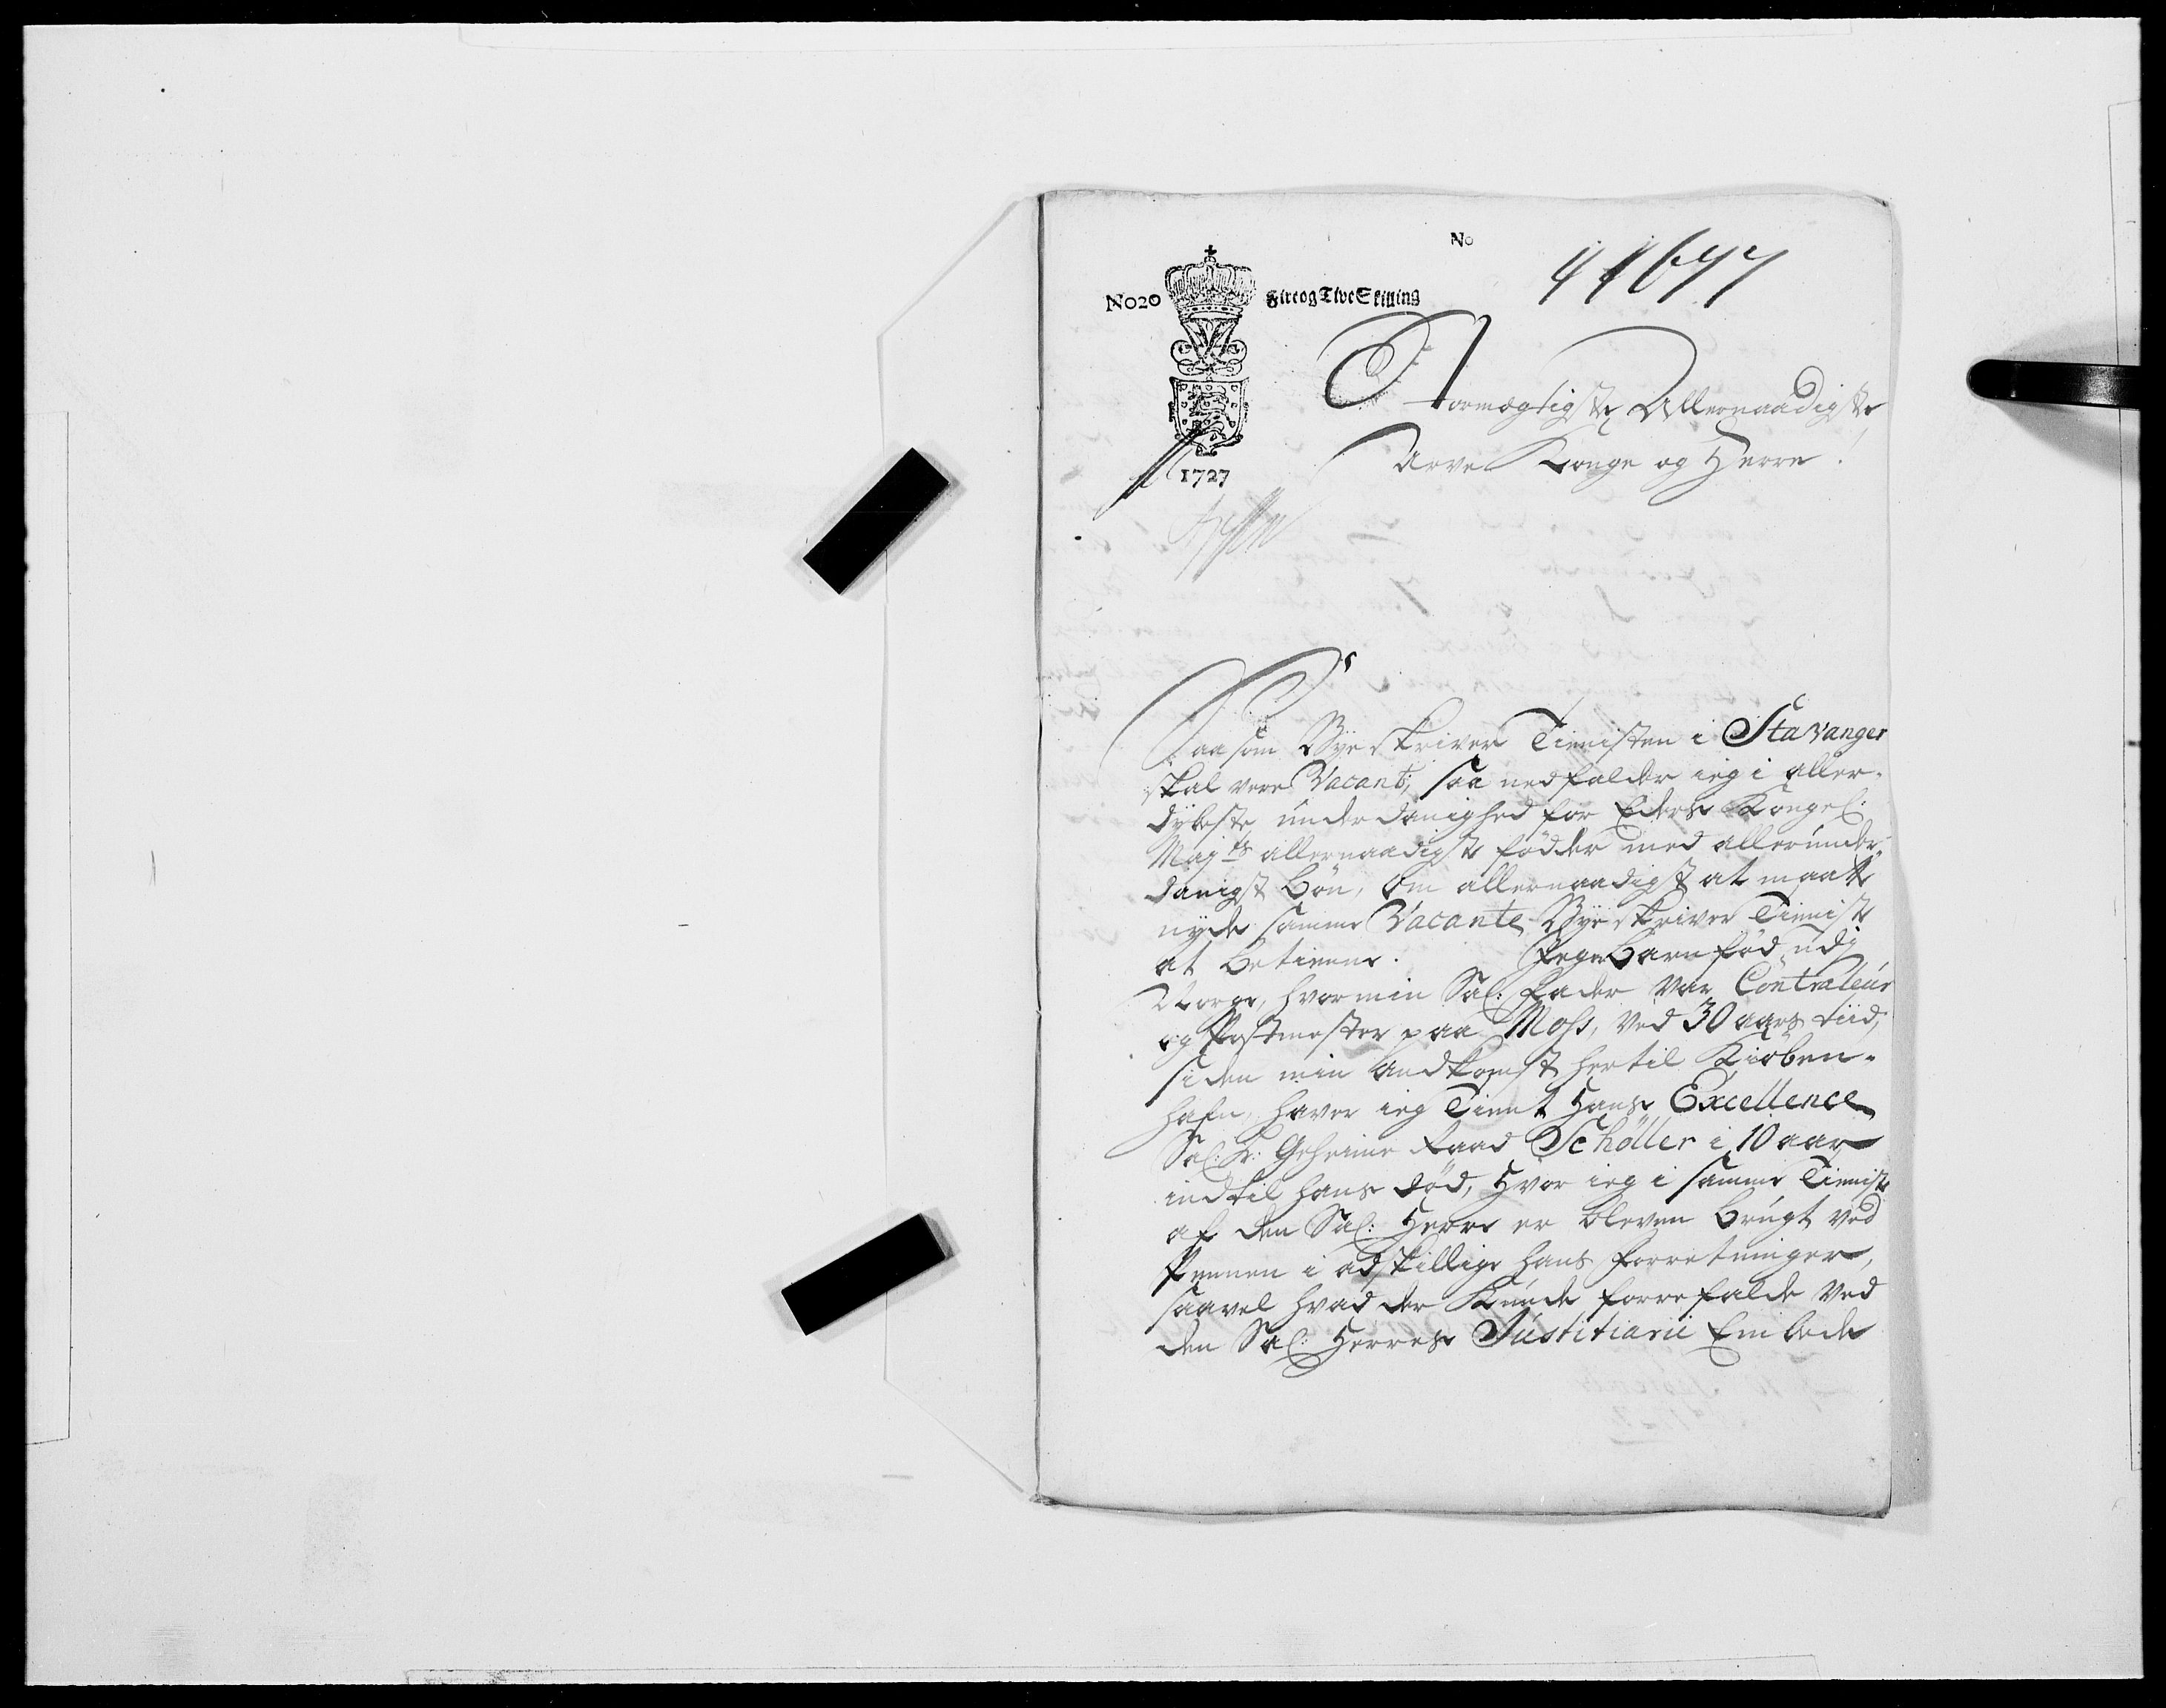 No
41677
No20
Fire og Tive Skilling
1727
Stormægtigste Allernaadigste
Arve Konge og Herre.
Saasom Byeskriver Tienisten i Stavanger
skal vere Vacant; saa nedfalder ieg i aller-
dybeste underdanighed for Eders Kongel:
Majts allernaadigste födder med allerunder-
danigst bön, om allernaadigst at maatte
nyde samme Vacante Byeskriver Tieniste
at betienne. Jeg er barn föd udj
Norge, hvor min Sal: Fader var Contraleur
og Postmester paa Moss, ved 30 aars tiid,
siden min Andkomst hertil Kiöben-
hafn, haver ieg Tient Hans Excellence
Sal: Hr: Geheime Raad Schöller i 10 aar
indtil hans död, Hvor ieg i samme Tieniste
af den Sal: Herre er bleven brugt ved
Pennen i adskillige hans Forretninger,
saavel hvad der Kunde forrefalde ved
den Sal: Herres Justitiarii Embede